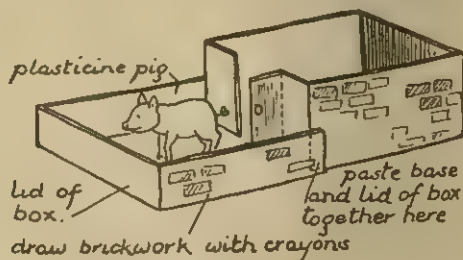 plasticine pig
lid of
box.
paste base
and lid of box
together here
draw brickwork with crayons